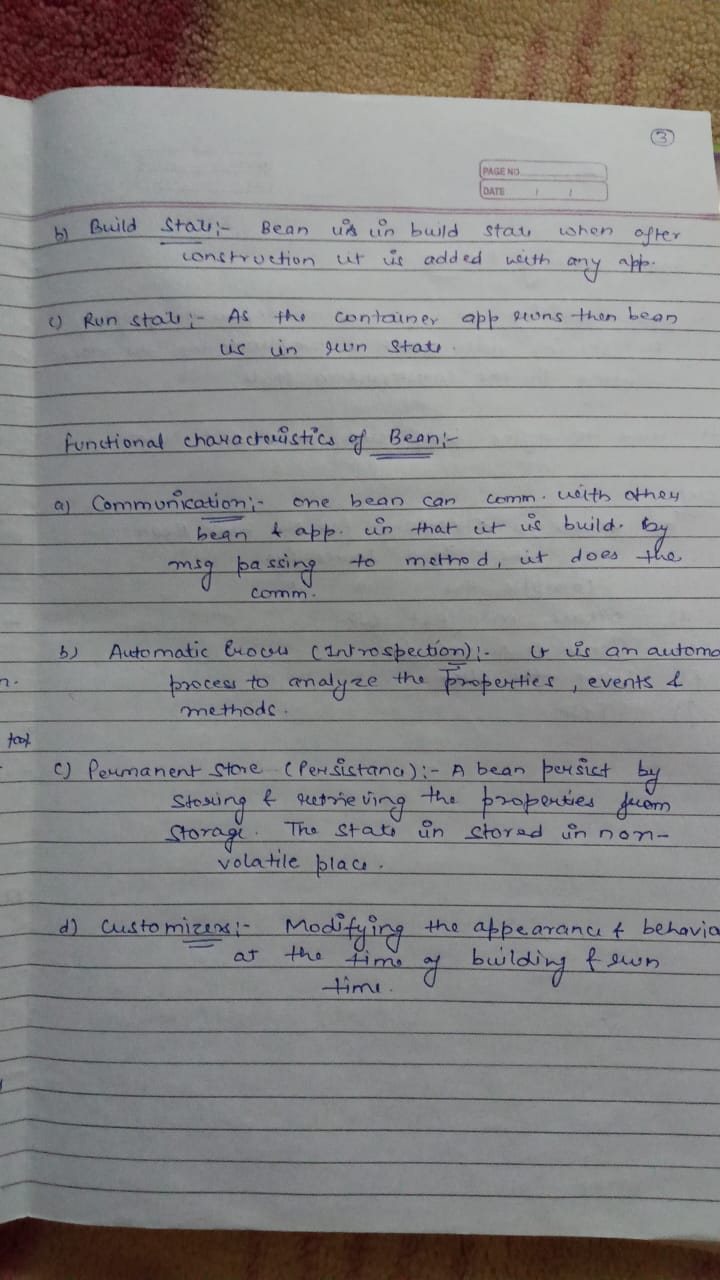 3
PAGE NO
DATE / /
b) Build State:- Bean is in build state when after
construction it is added with any app.
c) Run state:- As the container app runs then bean
is in run state.
functional characteristics of Bean:-
a) Communication:- one bean can comm. with other
bean & app. in that it is build. by
msg passing to method, it does the
comm.
b) Automatic Process (Introspection):- It is an automa
n.
process to analyze the Properties, events &
methods.
tool
c) Permanent store (Persistance):- A bean persist by
storing & retrieving the properties from
storage. The state in stored in non-
volatile place.
d) Customizers:- Modifying the appearance & behavio
at the time of building & run
time.